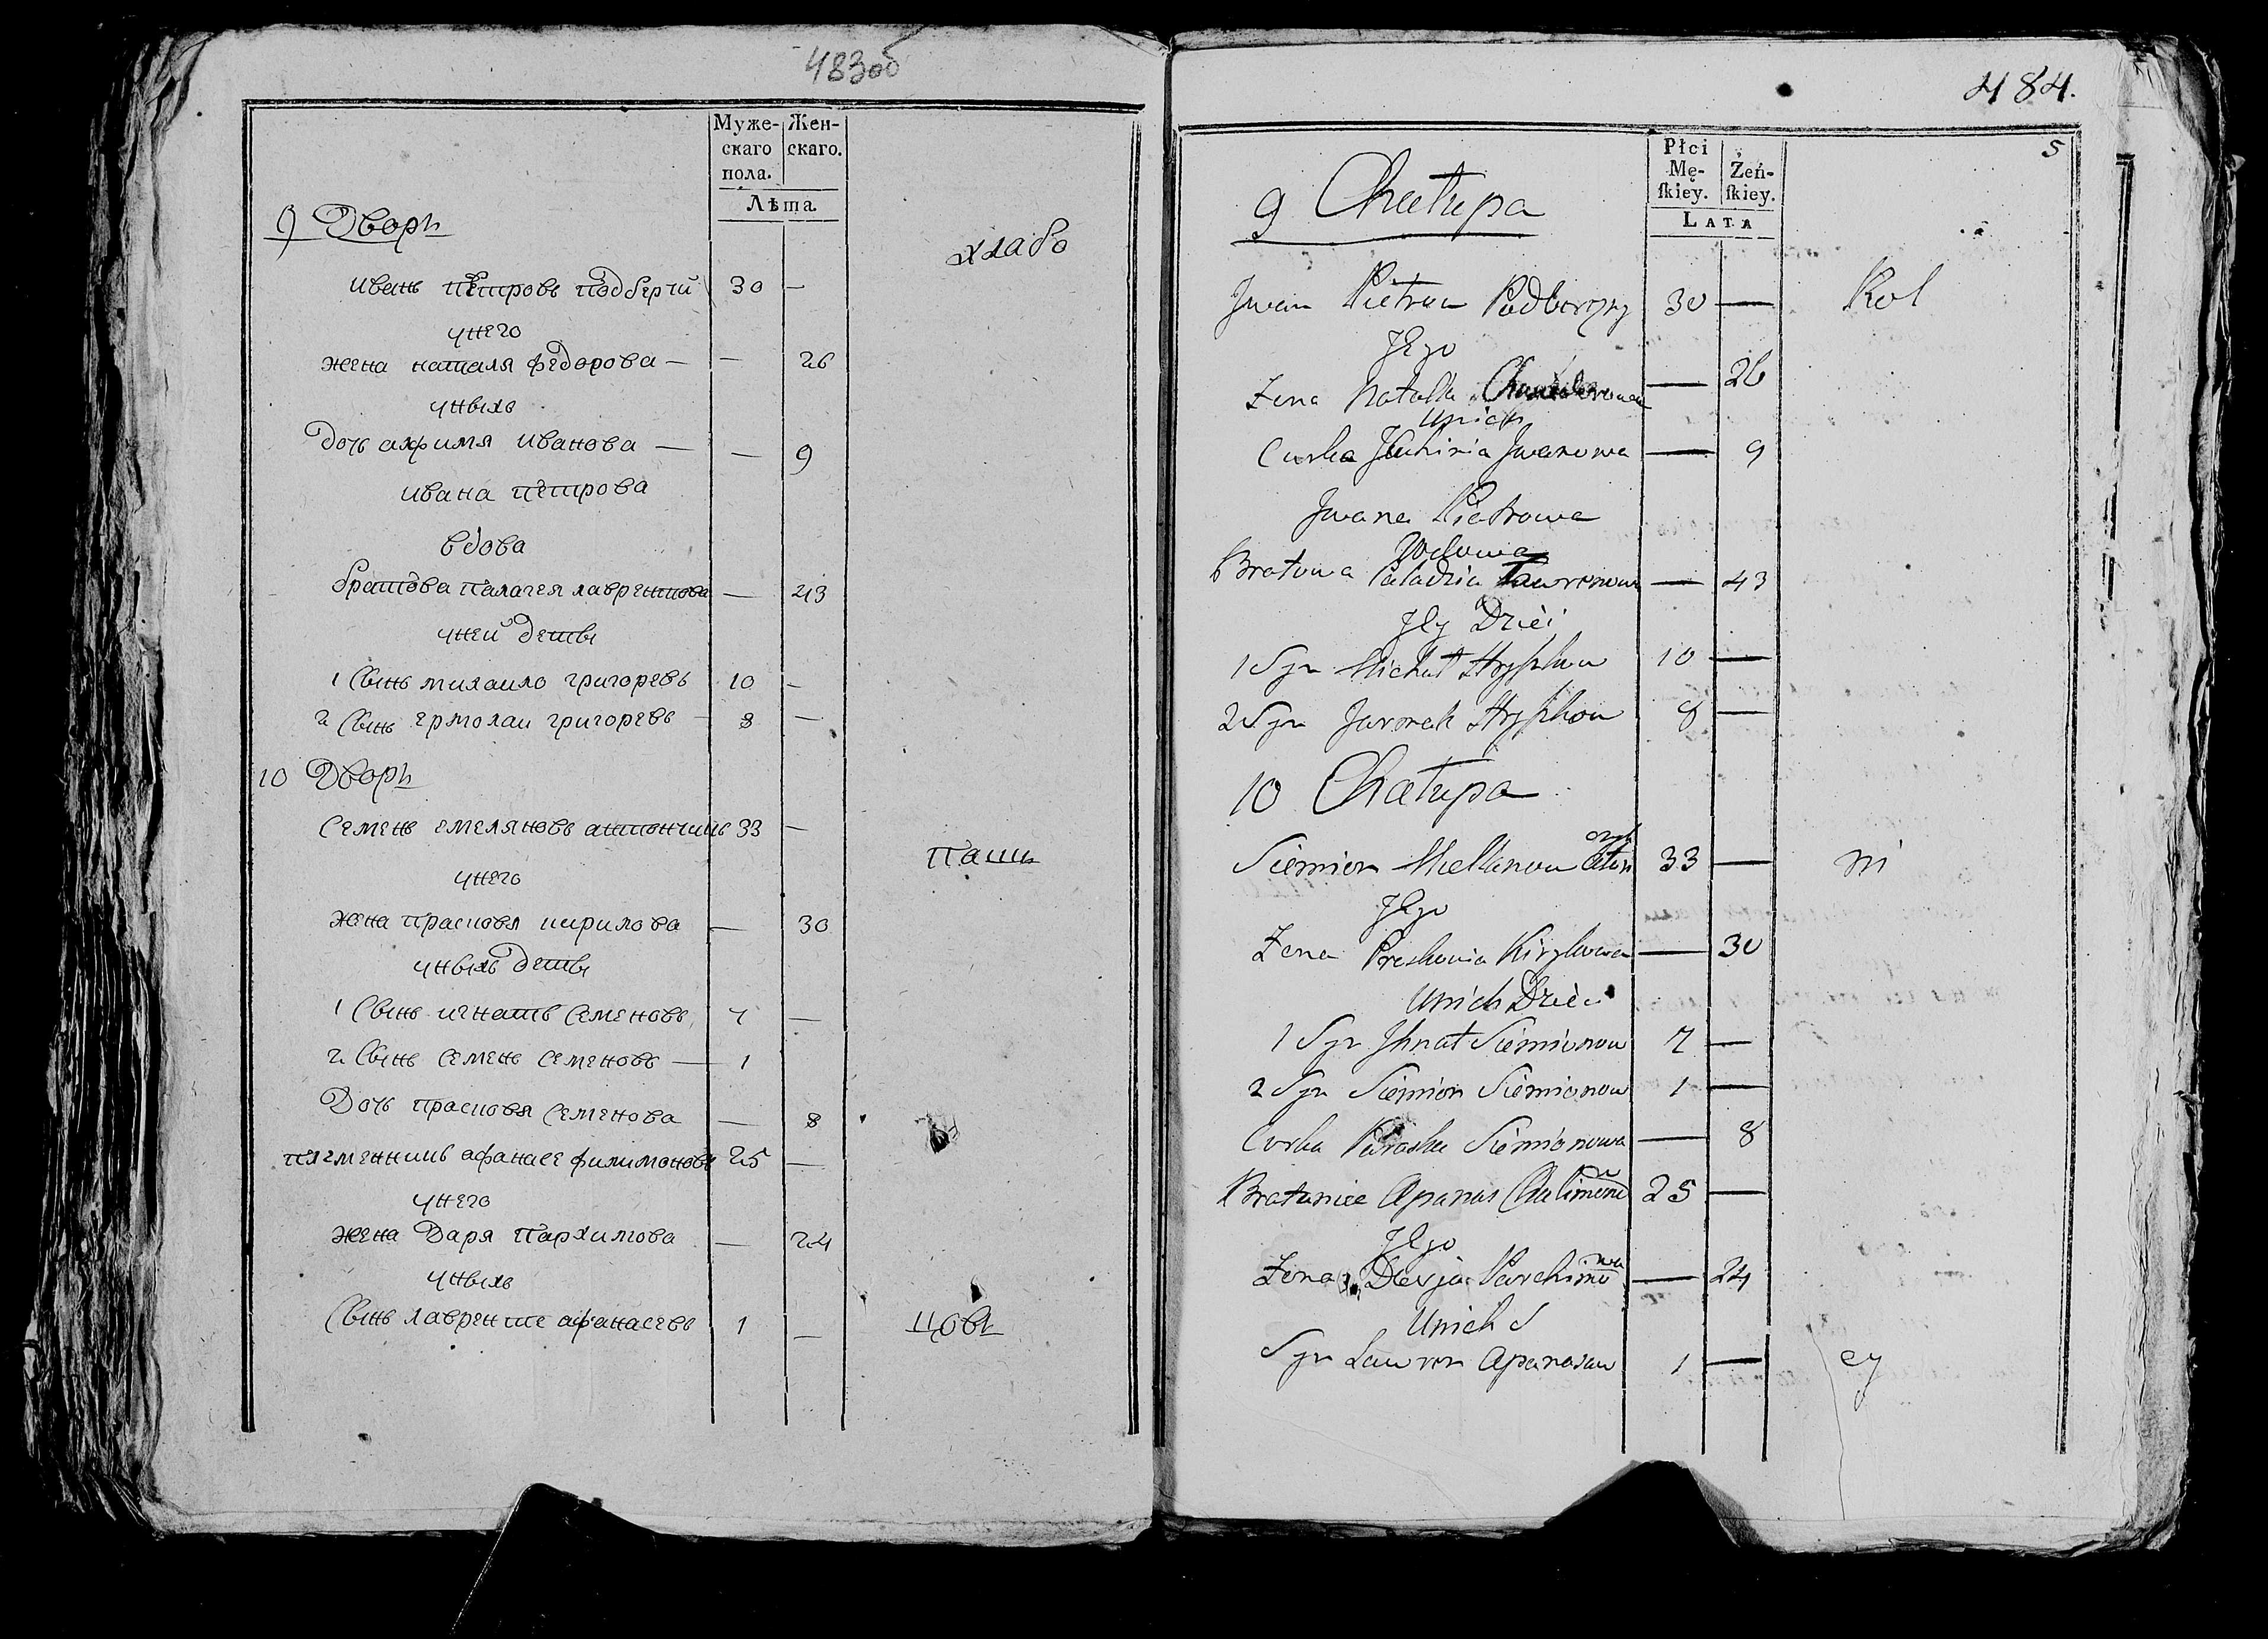 483об
Муже- Жен-
скаго скаго.
пола.
Лѣта
9 Дворъ
хлебо
иванъ петровъ подберги 30 —
унего
жена наталя федорова — — 26
унихъ
дочь ахимя иванова — — 9
ивана петрова
вдова
братова палагея лаврентова — 43
уней дети
1 Сынъ михаило григоревъ 10 —
2 Сынъ ермолаи григоревъ — 8 —
10 Дворъ
Семенъ емеляновъ 33 —
паш
унего
жена прасковя кирилова — 30
унихъ дети
1 Сынъ игнатъ Семеновъ 7 —
2 Сынъ Семенъ Семеновъ — 1
Дочь прасковя Семенова — 8
племенникъ афанасе филимоновъ 25 —
унего
жена Даря Пархимова — 24
унихъ
Сынъ лаврентие афанасевъ 1 —
цовъ
484.
5
Płci
Mę- Żeń-
skiey. skiey.
LATA
9 Chałupa
Jwan Pietrow Podberezny 30 — Rol
Jego
Zena Natalka — 26
Unich
Curka Jwanowa — 9
Jwana Pietrowa
Wdowa
Bratowa Paladzia Lawronowa — 43
Jey Dzieci
1 Syn Michał Hryhkow 10 —
2 Syn Jarmak Hryhkow 8 —
10 Chałupa
Siemion Mielanow 33 — ni
Jego
Zena Preskowia Kirylowa — 30
Unich Dzieci
1 Syn Jhnat Siemionow 7 —
2 Syn Siemion Siemionow 1 —
Curka Paraska Siemionowa — 8
Bratanice Apanas Chalimono 25 —
w
Jego
Zena Darja Parchimo — 24
wa
Unich
Syn Lawron Apanasow 1 — cy